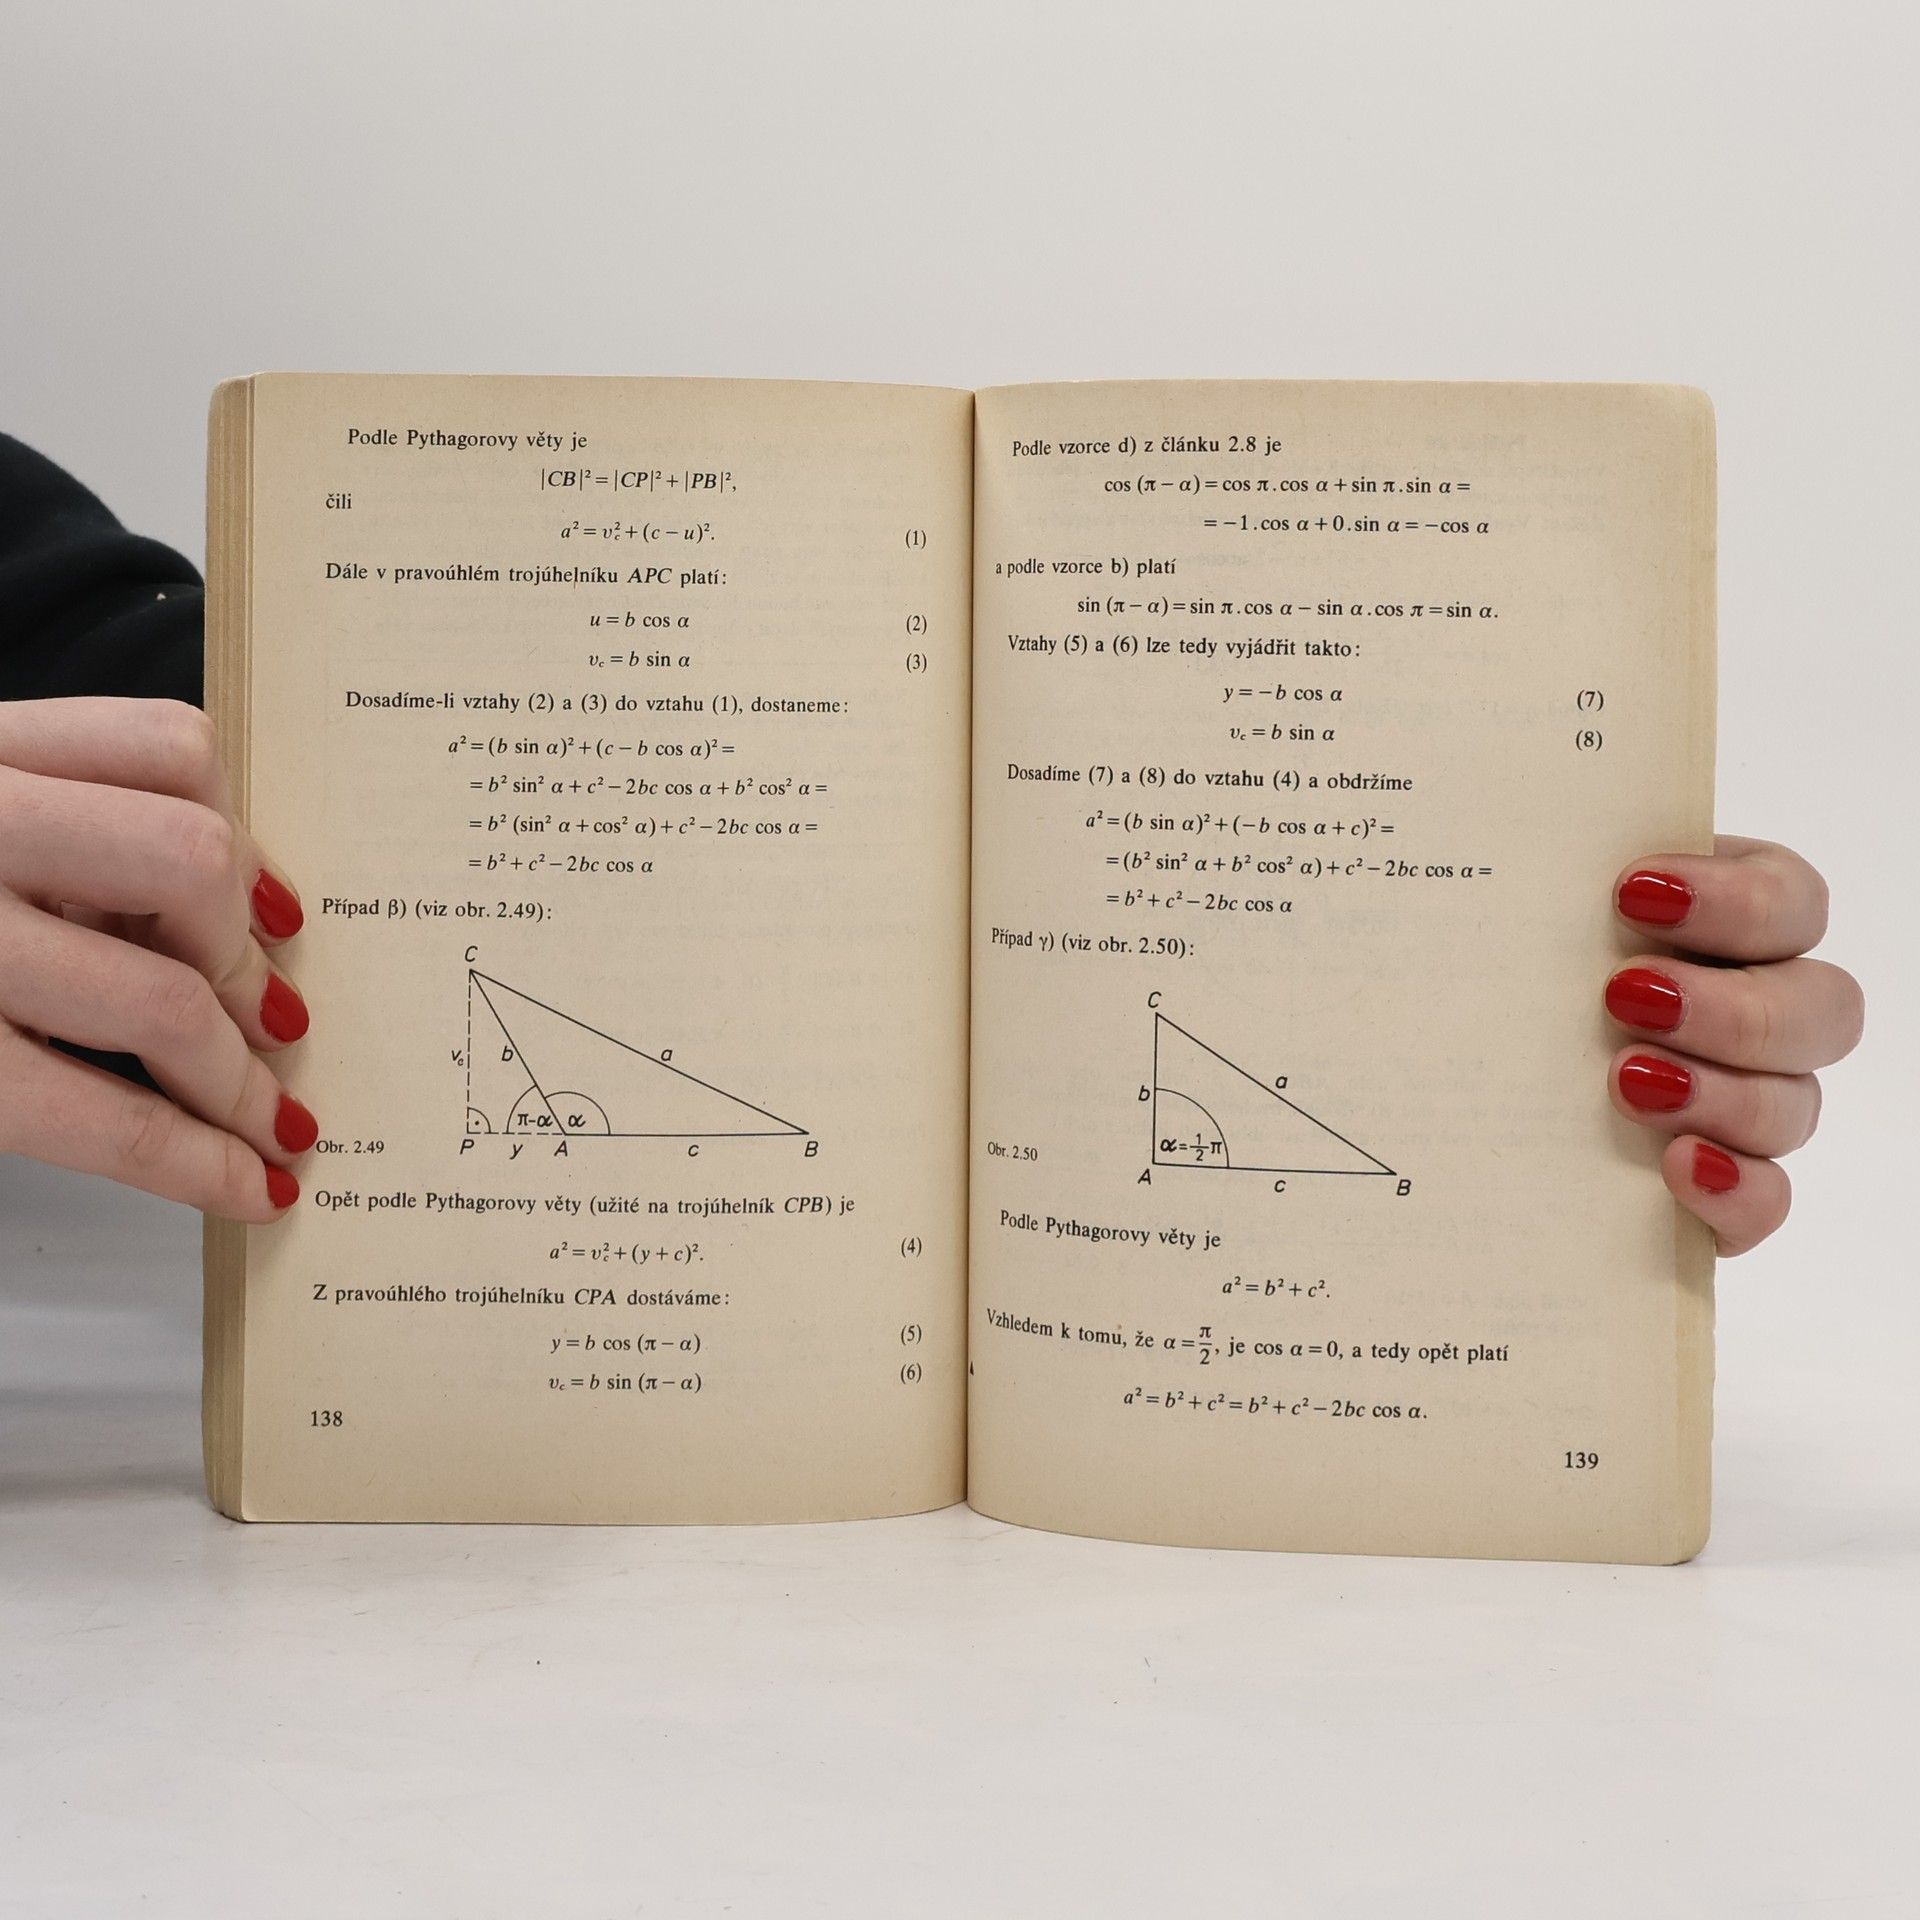 Podle Pythagorovy věty je
|CB|² = |CP|² + |PB|²,
čili
a² = v_c² + (c − u)². (1)
Dále v pravoúhlém trojúhelníku APC platí:
u = b cos α (2)
v_c = b sin α (3)
Dosadíme-li vztahy (2) a (3) do vztahu (1), dostaneme:
a² = (b sin α)² + (c − b cos α)² =
= b² sin² α + c² − 2bc cos α + b² cos² α =
= b² (sin² α + cos² α) + c² − 2bc cos α =
= b² + c² − 2bc cos α
Případ β) (viz obr. 2.49):
C
v_c b a
π-α α
Obr. 2.49 P y A c B
Opět podle Pythagorovy věty (užité na trojúhelník CPB) je
a² = v_c² + (y + c)². (4)
Z pravoúhlého trojúhelníku CPA dostáváme:
y = b cos (π − α) (5)
v_c = b sin (π − α) (6)
138
Podle vzorce d) z článku 2.8 je
cos (π − α) = cos π . cos α + sin π . sin α =
= −1 . cos α + 0 . sin α = −cos α
a podle vzorce b) platí
sin (π − α) = sin π . cos α − sin α . cos π = sin α.
Vztahy (5) a (6) lze tedy vyjádřit takto:
y = −b cos α (7)
v_c = b sin α (8)
Dosadíme (7) a (8) do vztahu (4) a obdržíme
a² = (b sin α)² + (−b cos α + c)² =
= (b² sin² α + b² cos² α) + c² − 2bc cos α =
= b² + c² − 2bc cos α
Případ γ) (viz obr. 2.50):
C
b a
α = 1/2 π
Obr. 2.50 A c B
Podle Pythagorovy věty je
a² = b² + c².
Vzhledem k tomu, že α = π/2, je cos α = 0, a tedy opět platí
a² = b² + c² = b² + c² − 2bc cos α.
139